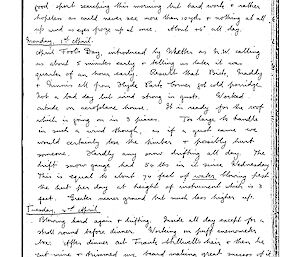 food sport searching this morning but hard work & rather
hopeless as could never see more than 10 yds & nothing at all
up and no eyes froze up at once. About +5° all day.
Monday, 1st April
April Fools Day, introduced by Wheller as N.W. calling
as about 5 minutes early & telling us later it was
quarter of an hour early. Result that Bob, Paddy
& Dunnis all from Hyde Park Corner got cold porridge.
Not a bad day but wind strong in gusts. Worked
outside on aeroplane house. It is ready for the roof
which is going on in 3 pieces. Too large to handle
in such a wind though, as if a gust came we
would certainly lose the timber & possibly hurt
someone. Hardly any snow drifting all day. The
drift snow gauge had 50 lbs in it since Wednesday.
This is equal to about 74 feet of water blowing past
the hut per day at height of instrument which is 3
feet. Greater near ground but much less higher up.
Tuesday, 2nd April
Blowing hard again & drifting. Inside all day except for a
stroll round before dinner. Working on puff anemometer
box. After dinner out Frank Stillwell's hair & then he
cut mine & trimmed my beard making great success of it